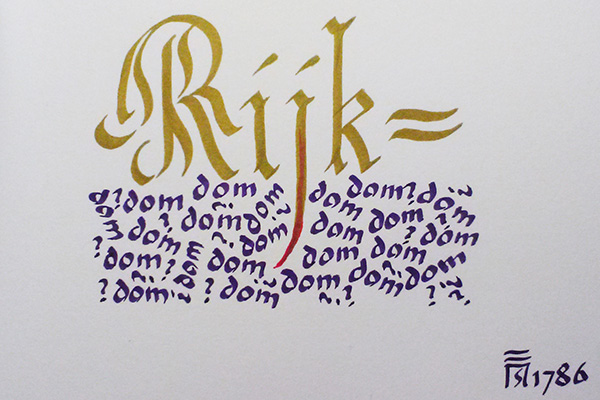 Rijk=
dom? dom dom dom dom dom? dom
dom ? dom dom dom dom dom ?
? dom ? dom dom dom dom
dom? dom dom dom dom
? dom ? dom dom dom dom ? ?
1786